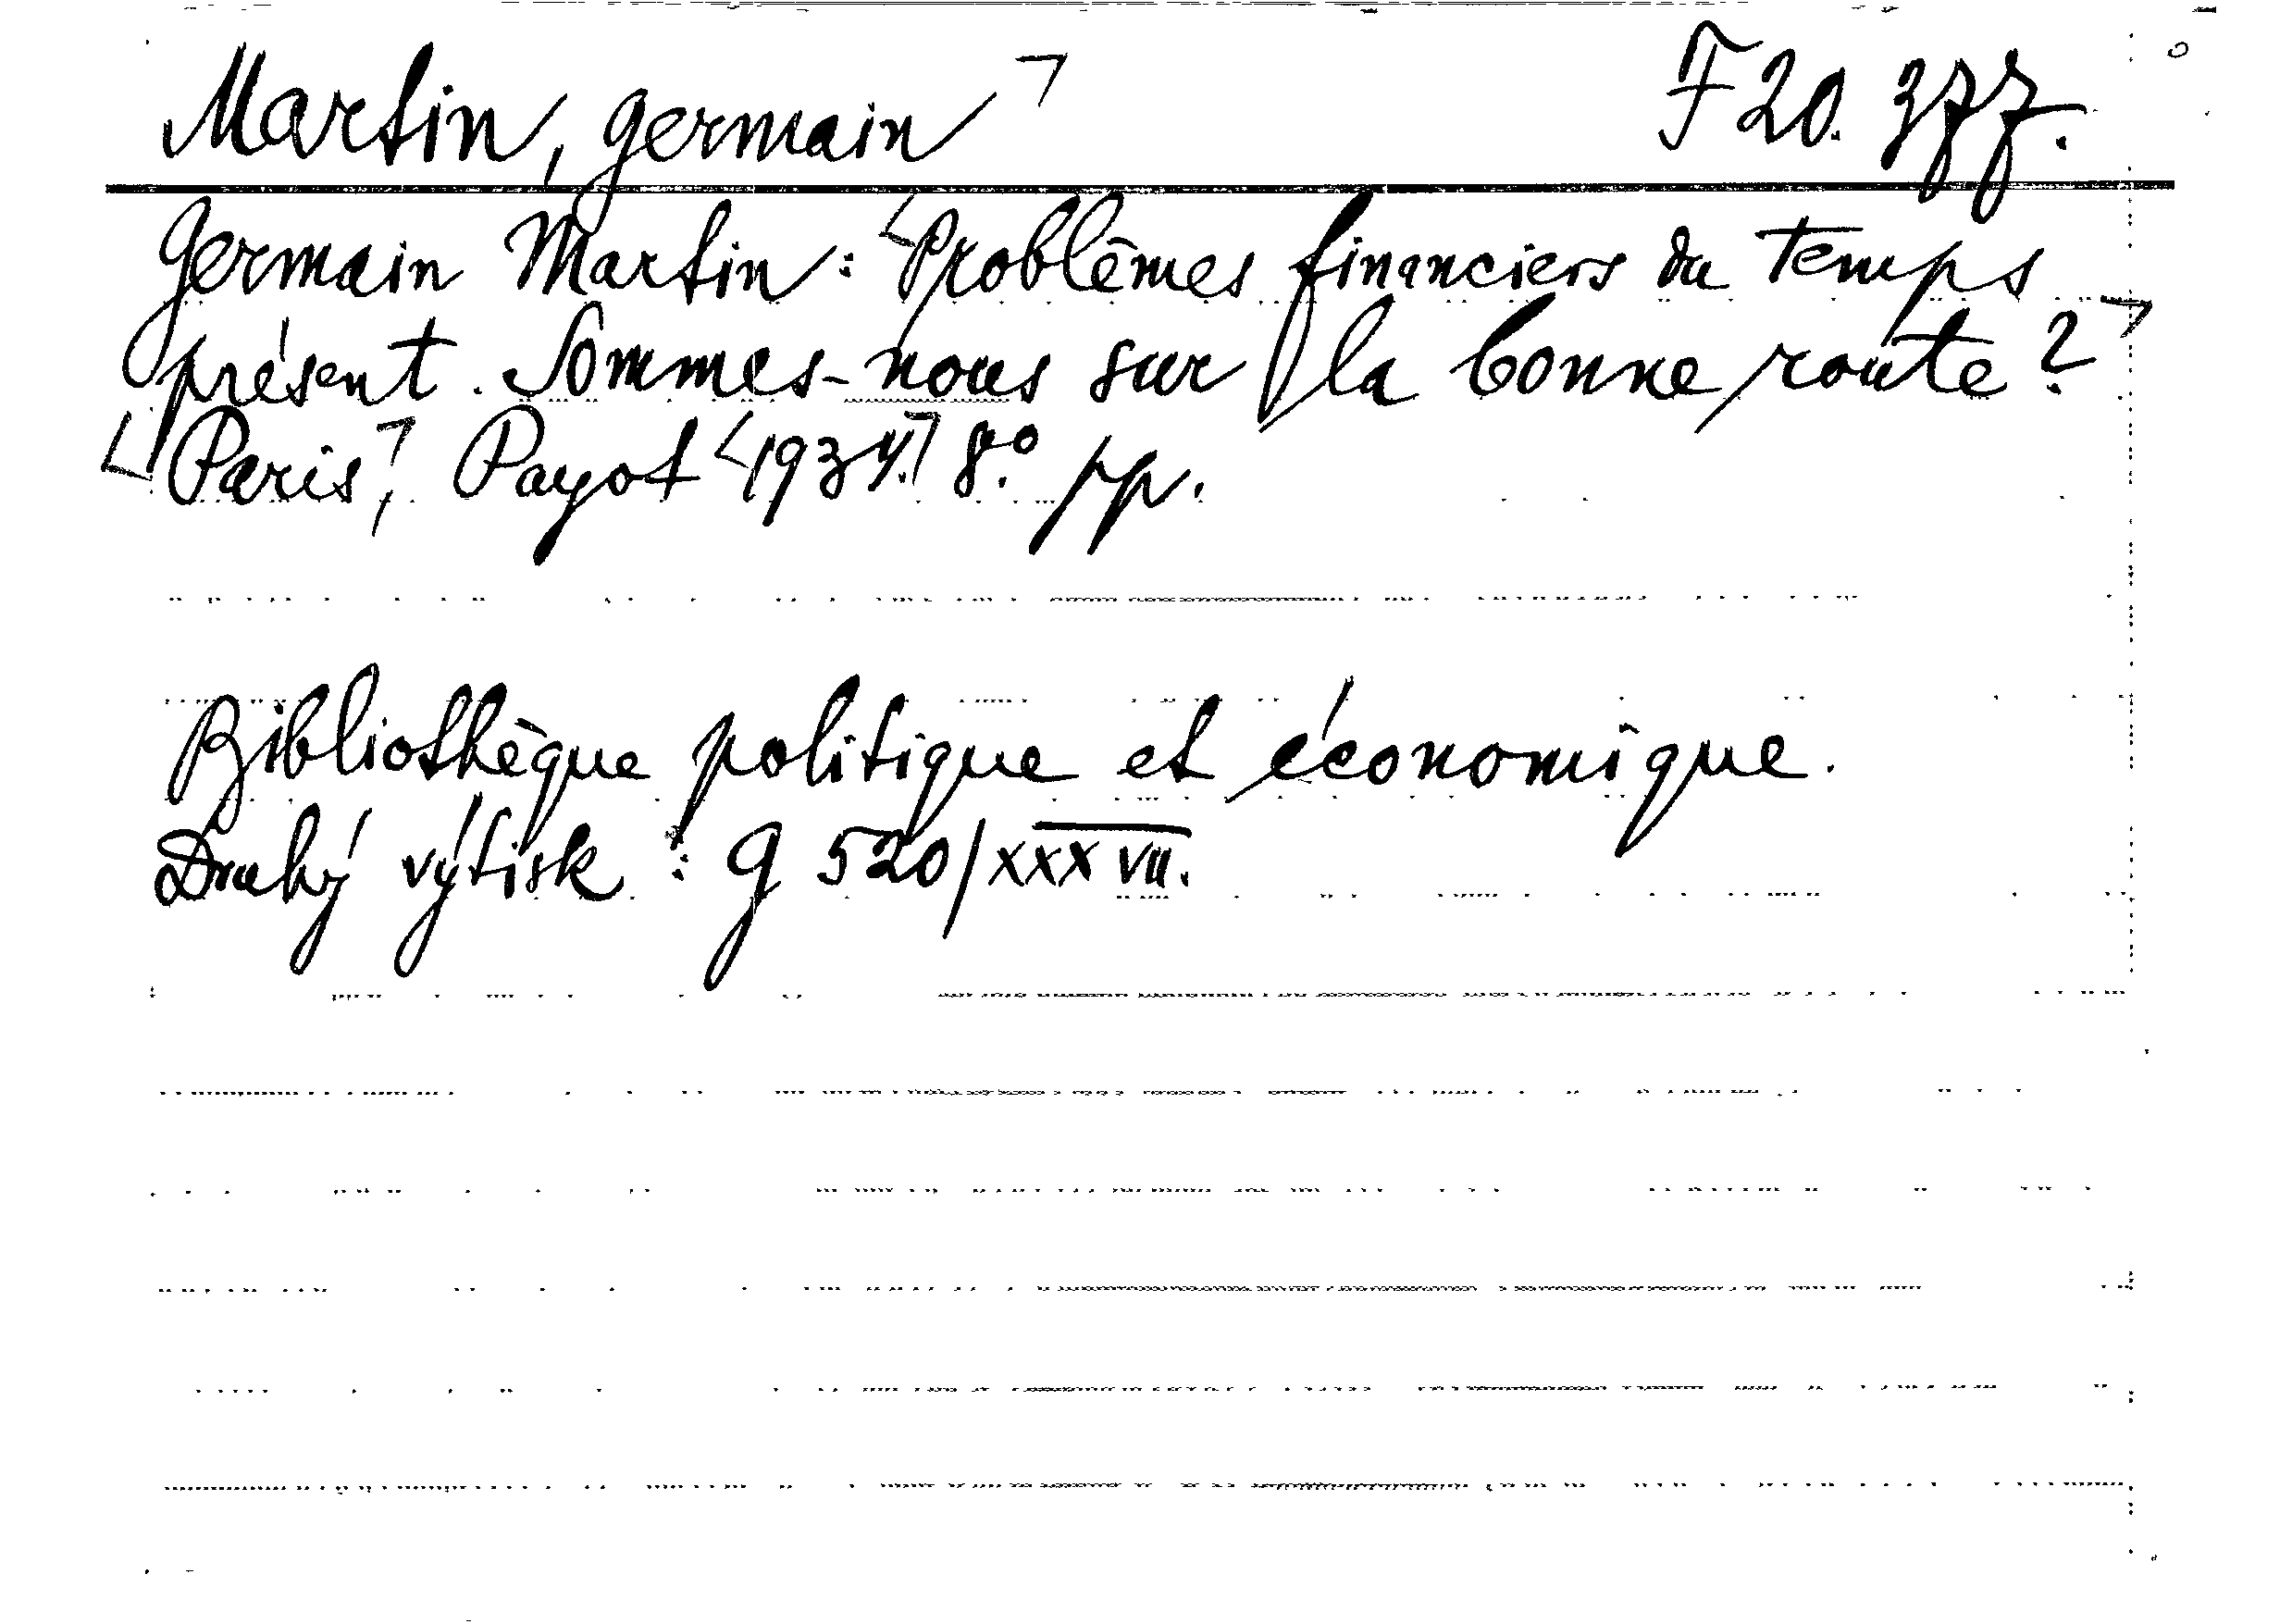 Martin, Germain ⌝ F 20.377.
Germain Martin: ⌞Problêmes financiers du temps
présent. Sommes-nous sur la bonne route?⌝
⌞Paris,⌝ Payot ⌞1934.⌝ 8.° pp.
Bibliothèque politique et économique.
Druhý výtisk: G 520/XXXVII.